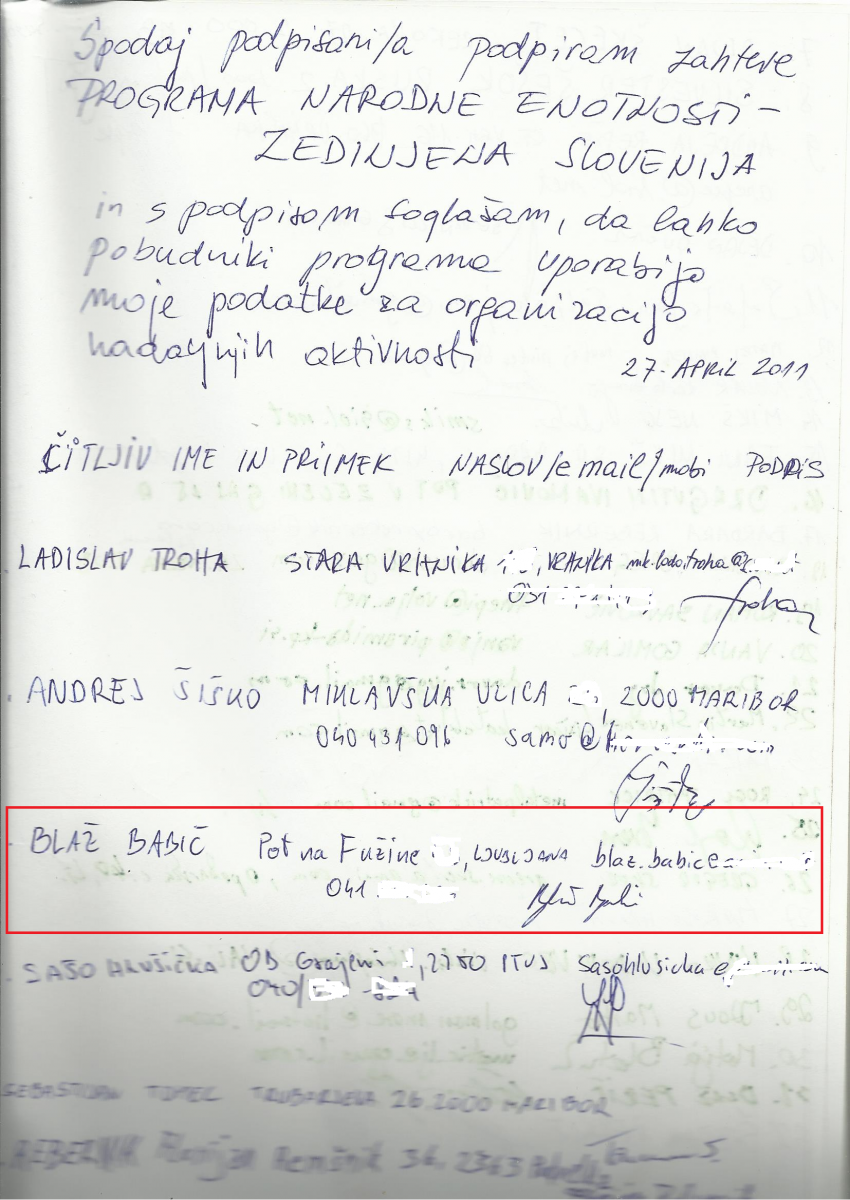 Spodaj podpisani/a podpiram zahteve
PROGRAMA NARODNE ENOTNOSTI -
ZEDINJENA SLOVENIJA
in s podpisom soglašam, da lahko
pobudniki programa uporabijo
moje podatke za organizacijo
nadaljnjih aktivnosti
27. APRIL 2011
ČITLJIV IME IN PRIIMEK NASLOV/e mail/mobi PODPIS
LADISLAV TROHA STARA VRHNIKA, VRHNIKA mk.lado.troha@
Troha
ANDREJ ŠIŠKO MIKLAVŠKA ULICA, 2000 MARIBOR
040 431 096 samo@
BLAŽ BABIČ Pot na Fužine, LJUBLJANA blaz.babic@
041
SAŠO HLUŠIČKA OB Grajeni, 2250 PTUJ sasohlusicka@
040/
SEBASTIJAN TRUBARJEVA 26, 2000 MARIBOR
REBERNIK Remšnik 36, 2363